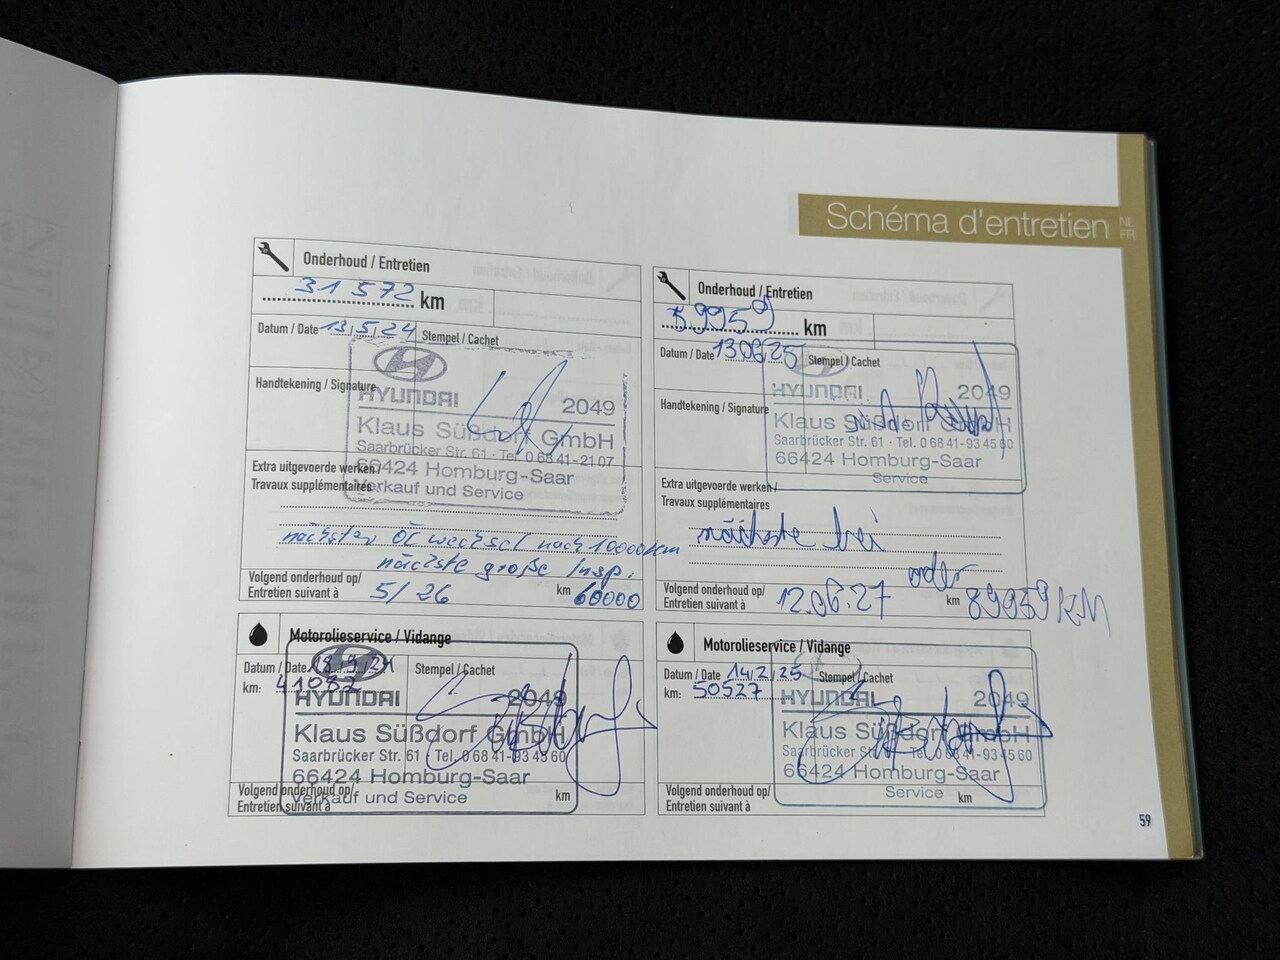 Schéma d'entretien NL FR
Onderhoud / Entretien
31 572 km
Datum / Date 13.5.24 Stempel / Cachet
Handtekening / Signature
HYUNDAI 2049
Klaus Süßdorf GmbH
Saarbrücker Str. 61 · Tel. 0 68 41-21 07
66424 Homburg-Saar
Verkauf und Service
Extra uitgevoerde werken /
Travaux supplémentaires
nächster Öl wechsel nach 10000 km
nächste große Insp.
Volgend onderhoud op/
Entretien suivant à 5/26 km 60000
Onderhoud / Entretien
59959 km
Datum / Date 13.06.25 Stempel / Cachet
Handtekening / Signature
HYUNDAI 2049
Klaus Süßdorf GmbH
Saarbrücker Str. 61 · Tel. 0 68 41-93 45 60
66424 Homburg-Saar
Service
Extra uitgevoerde werken /
Travaux supplémentaires
nächste bei
oder
Volgend onderhoud op/
Entretien suivant à 12.06.27 km 89959 KM
Motorolieservice / Vidange
Datum / Date 18.9.24 Stempel / Cachet
km: 41082
HYUNDAI 2049
Klaus Süßdorf GmbH
Saarbrücker Str. 61 · Tel. 0 68 41-93 45 60
66424 Homburg-Saar
Verkauf und Service
Volgend onderhoud op/
Entretien suivant à km
Motorolieservice / Vidange
Datum / Date 14.2.25 Stempel / Cachet
km: 50527
HYUNDAI 2049
Klaus Süßdorf GmbH
Saarbrücker Str. 61 · Tel. 0 68 41-93 45 60
66424 Homburg-Saar
Service
Volgend onderhoud op/
Entretien suivant à km
59